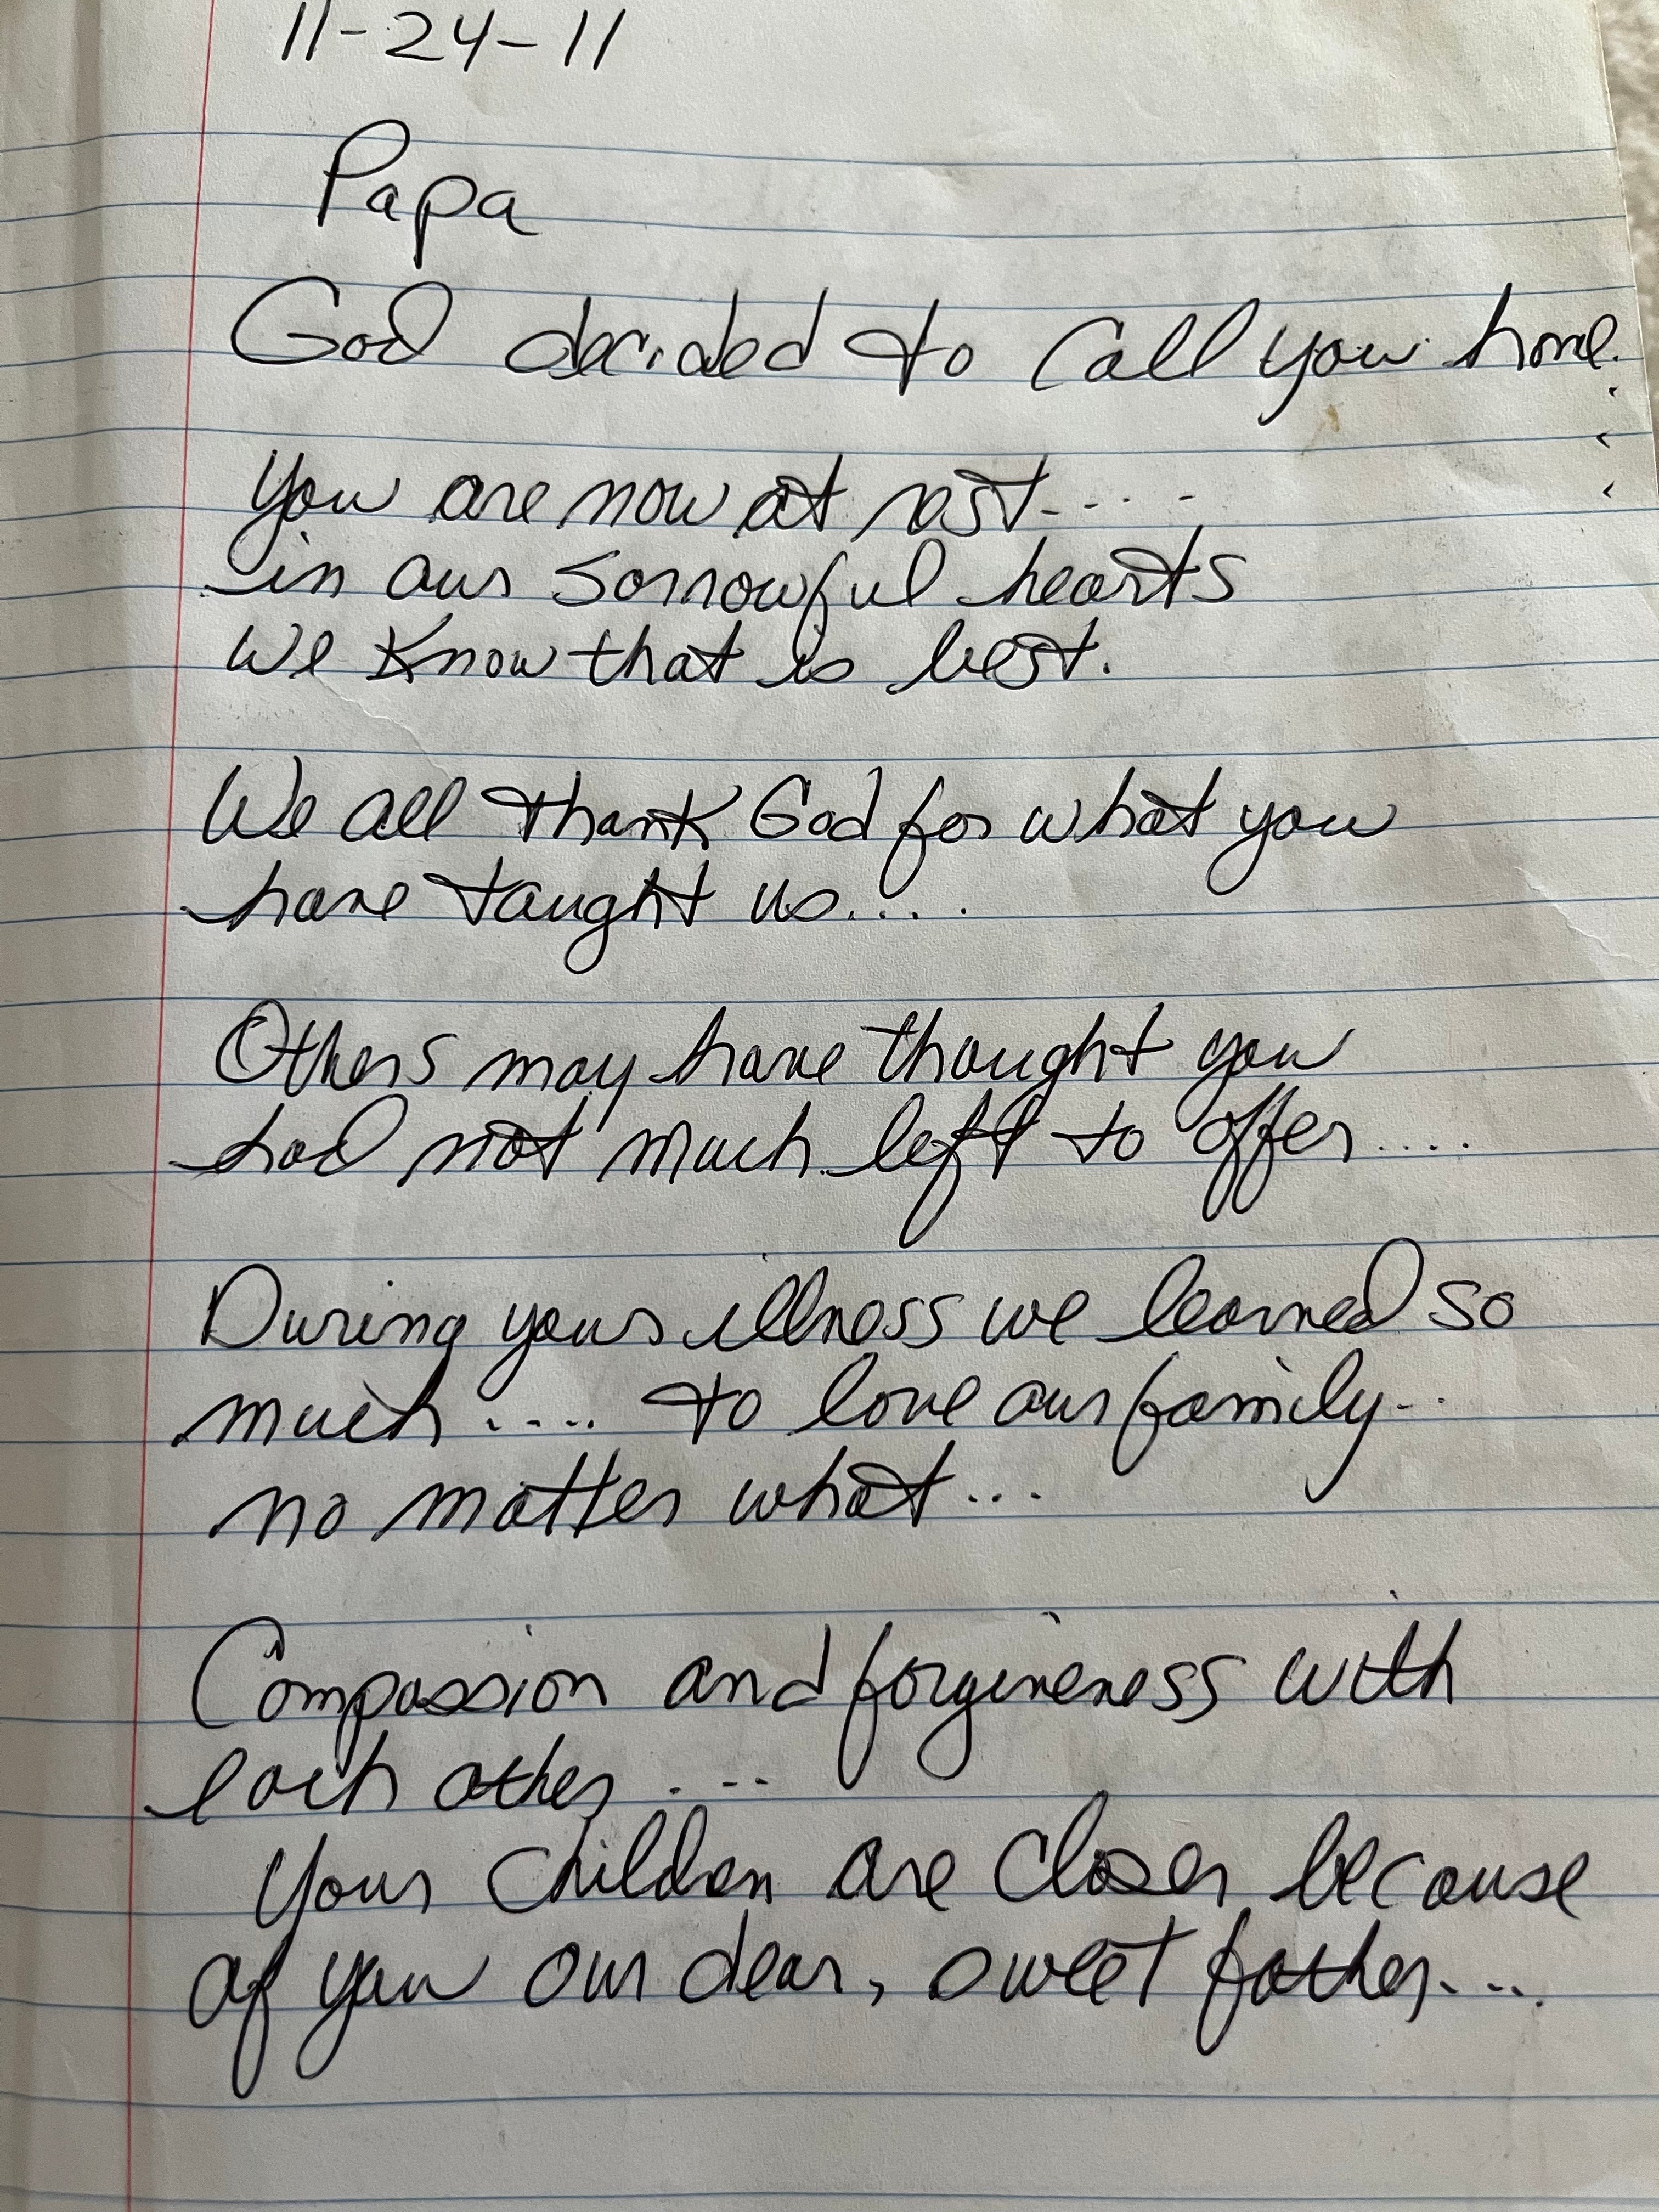 11-24-11
Papa
God decided to call you home....
You are now at rest....
in our sorrowful hearts
We know that is best.
We all thank God for what you
have taught us....
Others may have thought you
had not much left to offer....
During your illness we learned so
much.... to love our family...
no matter what...
Compassion and forgiveness with
each other....
Your children are closer because
of you our dear, sweet father....